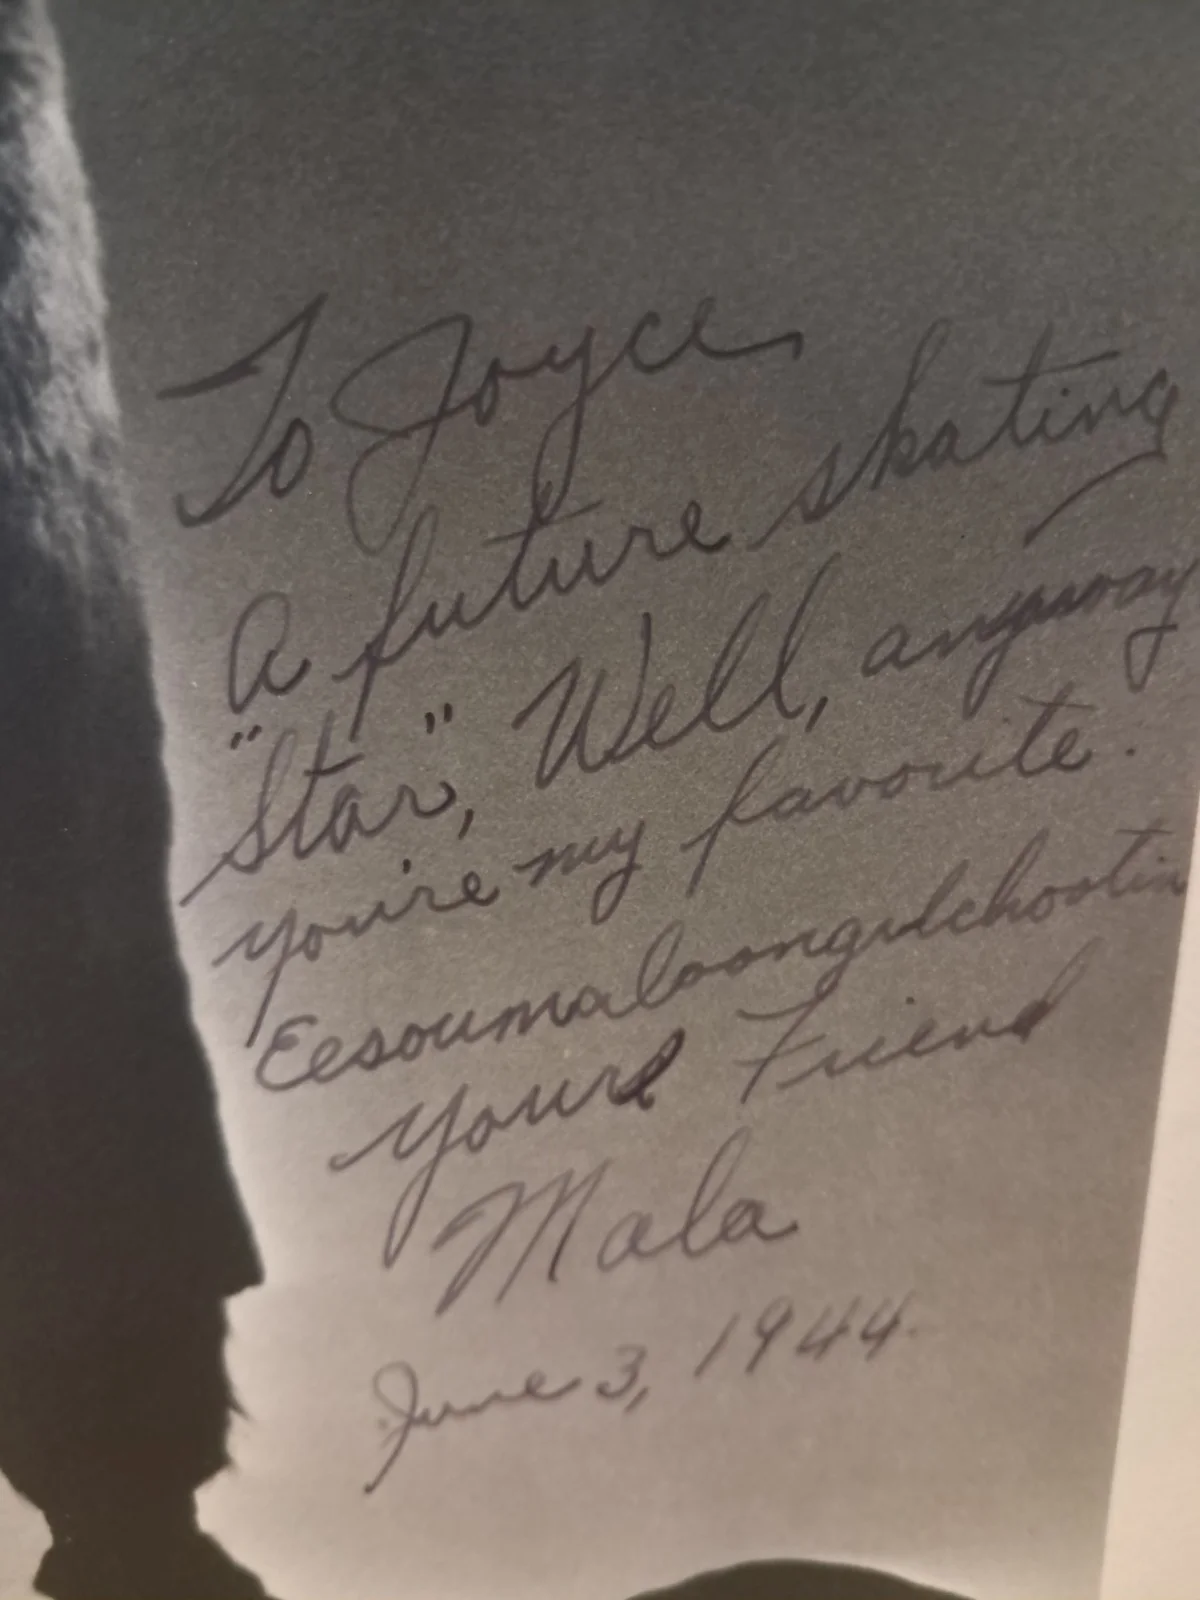 To Joyce
A future skating
"Star," Well, anyway
you're my favorite.
Eesoumaloongulchootin
Your Friend
Mala
June 3, 1944.